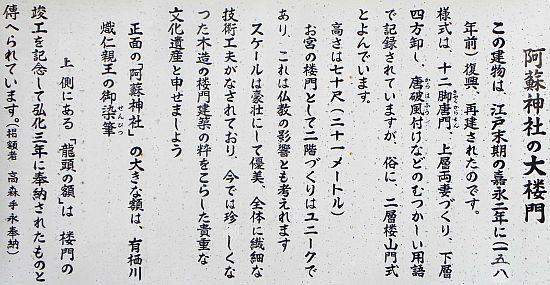 阿蘇神社の大楼門
この建物は、江戸末期の嘉永二年に(一五八
年前)復興、再建されたのです。
様式は、十二脚唐門、上層両妻づくり、下層
四方卸し、唐破風付けなどのむつかしい用語
で記録されていますが、俗に、二層楼山門式
とよんでいます。
高さは七十尺(二十一メートル)
お宮の楼門として二階づくりはユニークで
あり、これは仏教の影響とも考えれます
スケールは豪壮にして優美、全体に繊細な
技術工夫がなされており、今では珍しくな
った木造の楼門建築の粋をこらした貴重な
文化遺産と申せましよう
正面の「阿蘇神社」の大きな額は、有栖川
熾仁親王の御染筆
上側にある「龍頭の額」は楼門の
竣工を記念して弘化三年に奉納されたものと
傳へられています。(招額者 高森手永奉納)